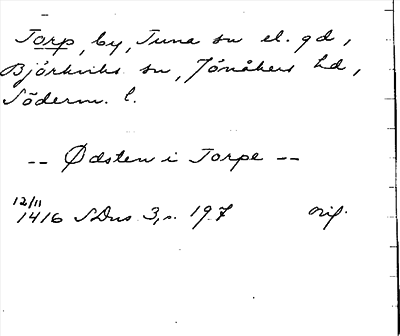 Torp, by, Tuna sn el. gd,
Björkviks sn, Jönåkers hd,
Söderm. l.
-- Ødsten i Torpe --
12/11
1416 SDns 3, s. 197 orig.